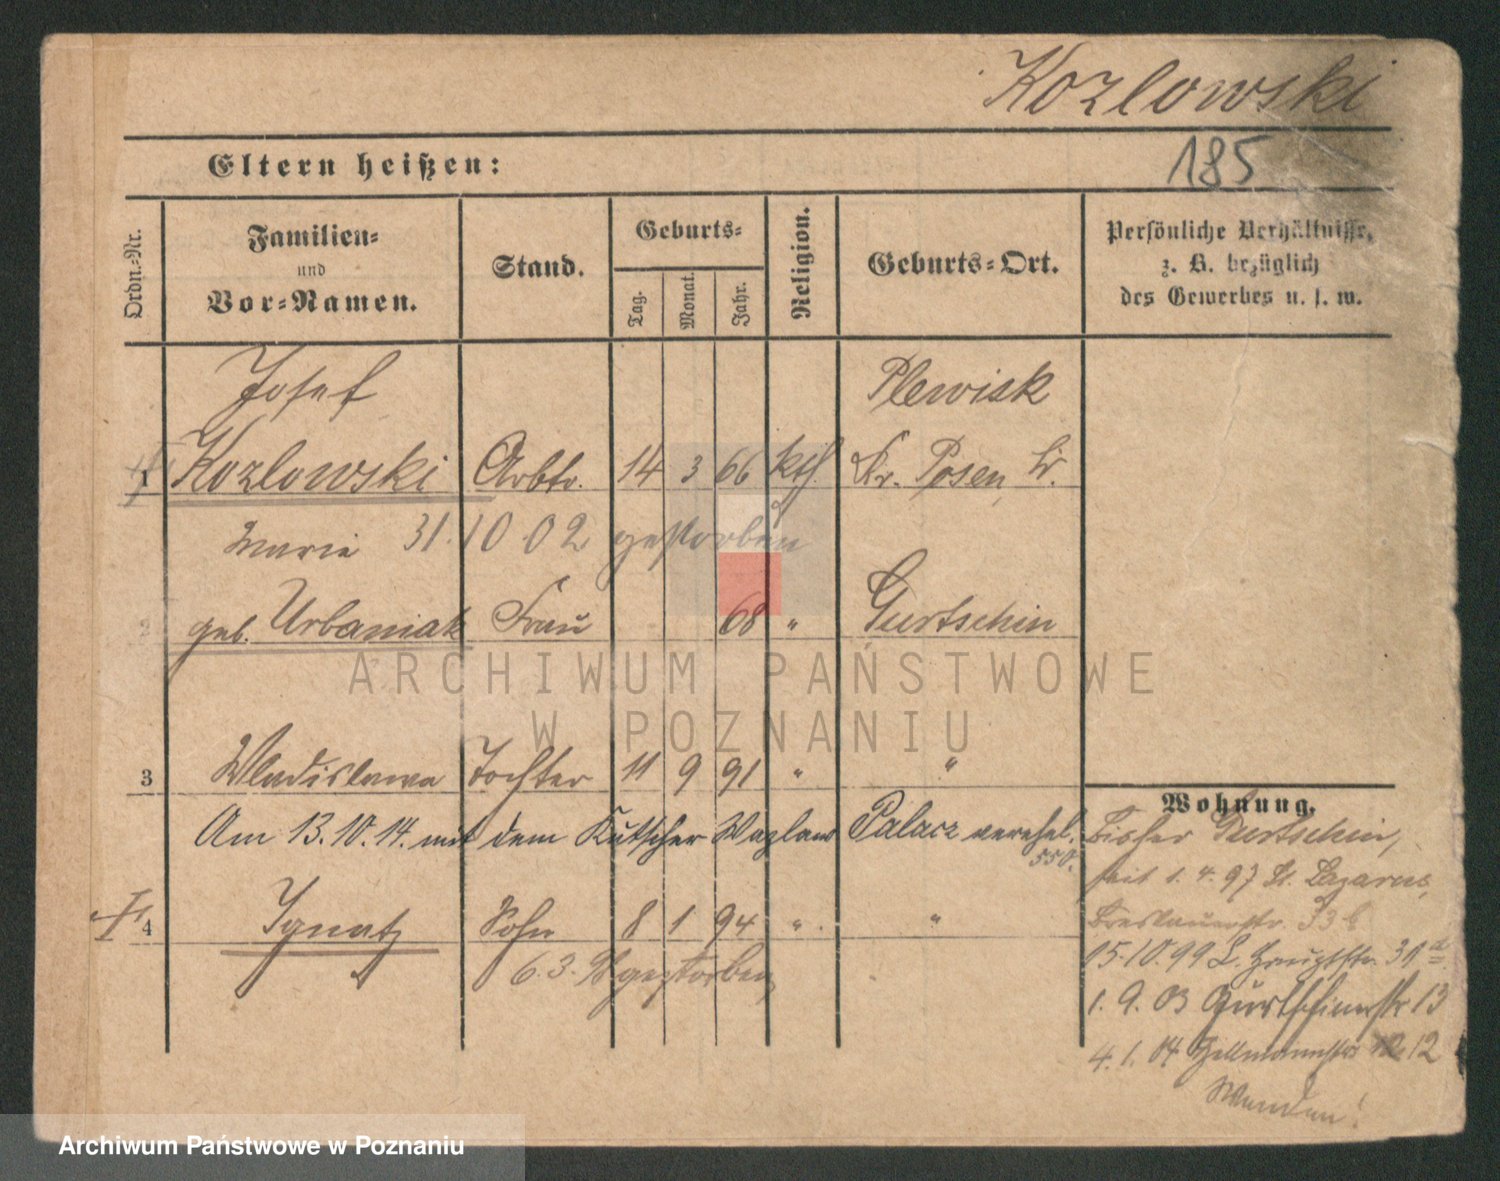 Kozlowski
185
Eltern heißen:
Ordn.-Nr.
Familien-
und
Vor-Namen.
Stand.
Geburts-
Tag.
Monat.
Jahr.
Religion.
Geburts-Ort.
Persönliche Verhältnisse,
z. B. bezüglich
des Gewerbes u. s. w.
Josef Plewisk
1 Kozlowski Arbtr. 14 3 66 kth. Kr. Posen, W.
Marie 31.10.02 gestorben
2 geb. Urbaniak Frau 68 " Gurtschin
ARCHIWUM PAŃSTWOWE
W POZNANIU
3 Wladislawa Tochter 11 9 91 " "
Am 13.10.14. mit dem Kutscher Wazlaw Palacz verehel.
550.
4 Ignatz Sohn 8 1 94 " "
6.3. gestorben
Wohnung.
Bisher Gurtschin,
seit 1.4.97 St. Lazarus,
Breslauerstr. 33b
15.10.99 L. Hauptstr. 31a
1.9.03 Gurtschinerstr 13
4.1.04 Hellmannstr 12
Wenden!
Archiwum Państwowe w Poznaniu